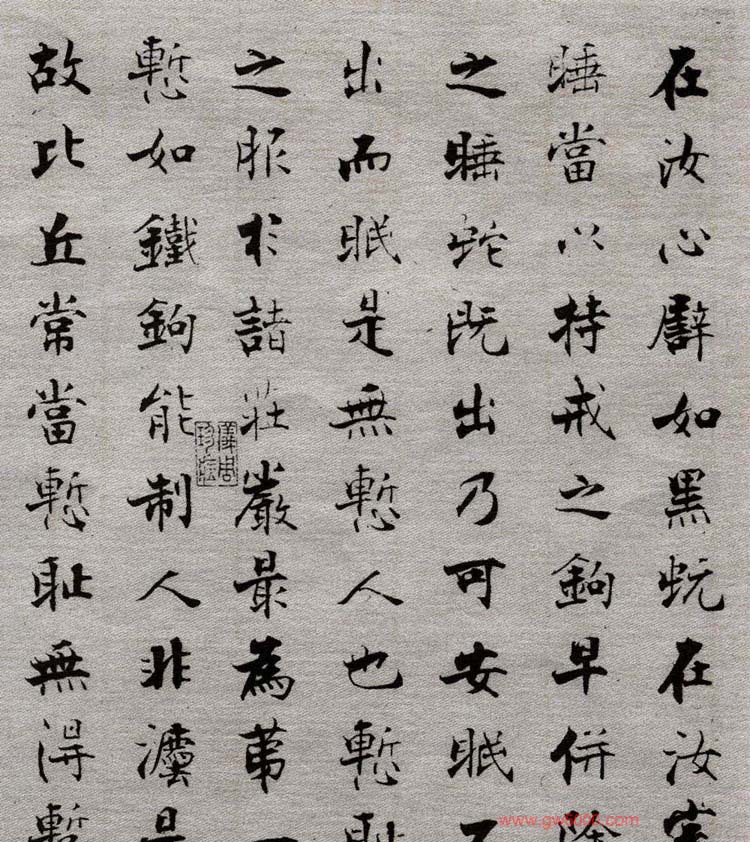 在汝心譬如黑蚖在汝室
睡當以持戒之鉤早併除
之睡蛇既出乃可安眠不
出而眠是無慙人也慙耻
之服於諸莊嚴最為第一
慙如鐵鉤能制人非灋是
故比丘常當慙耻無得暫
儀周珍藏